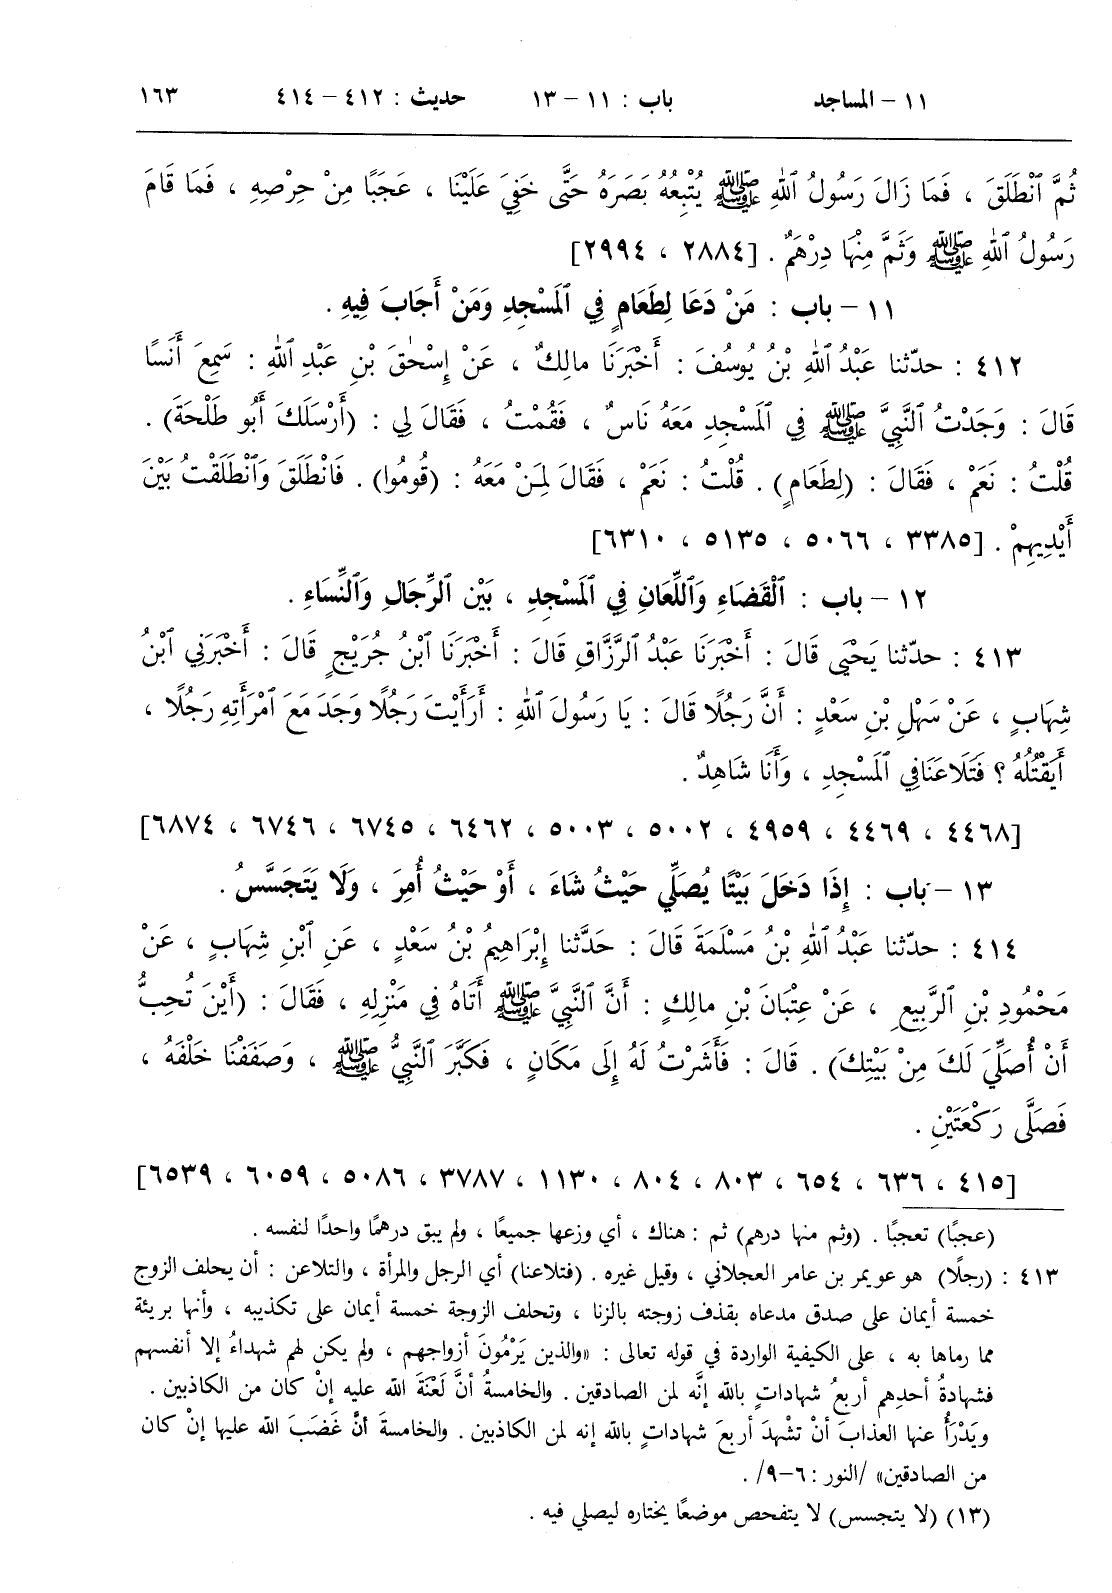 ١١ – المساجد باب : ١١ – ١٣ حديث : ٤١٢ – ٤١٤ ١٦٣
ثُمَّ ٱنْطَلَقَ ، فَمَا زَالَ رَسُولُ ٱللهِ ﷺ يُتْبِعُهُ بَصَرَهُ حَتَّى خَفِيَ عَلَيْنَا ، عَجَبًا مِنْ حِرْصِهِ ، فَمَا قَامَ
رَسُولُ ٱللهِ ﷺ وَثَمَّ مِنْهَا دِرْهَمٌ . [٢٨٨٤ ، ٢٩٩٤]
١١ – باب : مَنْ دَعَا لِطَعَامٍ فِي ٱلْمَسْجِدِ وَمَنْ أَجَابَ فِيهِ .
٤١٢ : حدّثنا عَبْدُ ٱللهِ بْنُ يُوسُفَ : أَخْبَرَنَا مالِكٌ ، عَنْ إِسْحٰقَ بْنِ عَبْدِ ٱللهِ : سَمِعَ أَنَسًا
قَالَ : وَجَدْتُ ٱلنَّبِيَّ ﷺ فِي ٱلْمَسْجِدِ مَعَهُ نَاسٌ ، فَقُمْتُ ، فَقَالَ لِي : (أَرْسَلَكَ أَبُو طَلْحَةَ) .
قُلْتُ : نَعَمْ ، فَقَالَ : (لِطَعَامٍ) . قُلْتُ : نَعَمْ ، فَقَالَ لِمَنْ مَعَهُ : (قُومُوا) . فَانْطَلَقَ وَٱنْطَلَقْتُ بَيْنَ
أَيْدِيهِمْ . [٣٣٨٥ ، ٥٠٦٦ ، ٥١٣٥ ، ٦٣١٠]
١٢ – باب : ٱلْقَضَاءِ وَٱللِّعَانِ فِي ٱلْمَسْجِدِ ، بَيْنَ ٱلرِّجَالِ وَٱلنِّسَاءِ .
٤١٣ : حدّثنا يَحْيَى قَالَ : أَخْبَرَنَا عَبْدُ ٱلرَّزَّاقِ قَالَ : أَخْبَرَنَا ٱبْنُ جُرَيْجٍ قَالَ : أَخْبَرَنِي ٱبْنُ
شِهَابٍ ، عَنْ سَهْلِ بْنِ سَعْدٍ : أَنَّ رَجُلًا قَالَ : يَا رَسُولَ ٱللهِ : أَرَأَيْتَ رَجُلًا وَجَدَ مَعَ ٱمْرَأَتِهِ رَجُلًا ،
أَيَقْتُلُهُ ؟ فَتَلَاعَنَا فِي ٱلْمَسْجِدِ ، وَأَنَا شَاهِدٌ .
[٤٤٦٨ ، ٤٤٦٩ ، ٤٩٥٩ ، ٥٠٠٢ ، ٥٠٠٣ ، ٦٤٦٢ ، ٦٧٤٥ ، ٦٧٤٦ ، ٦٨٧٤]
١٣ – باب : إِذَا دَخَلَ بَيْتًا يُصَلِّي حَيْثُ شَاءَ ، أَوْ حَيْثُ أُمِرَ ، وَلَا يَتَجَسَّسُ .
٤١٤ : حدّثنا عَبْدُ ٱللهِ بْنُ مَسْلَمَةَ قَالَ : حَدَّثَنَا إِبْرَاهِيمُ بْنُ سَعْدٍ ، عَنِ ٱبْنِ شِهَابٍ ، عَنْ
مَحْمُودِ بْنِ ٱلرَّبِيعِ ، عَنْ عِتْبَانَ بْنِ مالِكٍ : أَنَّ ٱلنَّبِيَّ ﷺ أَتَاهُ فِي مَنْزِلِهِ ، فَقَالَ : (أَيْنَ تُحِبُّ
أَنْ أُصَلِّيَ لَكَ مِنْ بَيْتِكَ) . قَالَ : فَأَشَرْتُ لَهُ إِلَى مَكَانٍ ، فَكَبَّرَ ٱلنَّبِيُّ ﷺ ، وَصَفَفْنَا خَلْفَهُ ،
فَصَلَّى رَكْعَتَيْنِ .
[٤١٥ ، ٦٣٦ ، ٦٥٤ ، ٨٠٣ ، ٨٠٤ ، ١١٣٠ ، ٣٧٨٧ ، ٥٠٨٦ ، ٦٠٥٩ ، ٦٥٣٩]
(عجبًا) تعجبًا . (وثم منها درهم) ثم : هناك ، أي وزعها جميعًا ، ولم يبق درهمًا واحدًا لنفسه .
٤١٣ : (رجلًا) هو عويمر بن عامر العجلاني ، وقيل غيره . (فتلاعنا) أي الرجل والمرأة ، والتلاعن : أن يحلف الزوج
خمسة أيمان على صدق مدعاه بقذف زوجته بالزنا ، وتحلف الزوجة خمسة أيمان على تكذيبه ، وأنها بريئة
مما رماها به ، على الكيفية الواردة في قوله تعالى : «والذين يَرْمُونَ أزواجهم ، ولم يكن لهم شهداءُ إلا أنفسهم
فشهادةُ أحدِهم أربعُ شهاداتٍ بالله إنَّه لمن الصادقين . والخامسةُ أنَّ لَعْنَةَ الله عليه إنْ كان من الكاذبين .
ويَدْرَأُ عنها العذابَ أنْ تشْهدَ أربعَ شهاداتٍ بالله إنه لمن الكاذبين . والخامسةَ أنَّ غَضَبَ الله عليها إنْ كان
من الصادقين» /النور : ٦–٩/ .
(١٣) (لا يتجسس) لا يتفحص موضعًا يختاره ليصلي فيه .